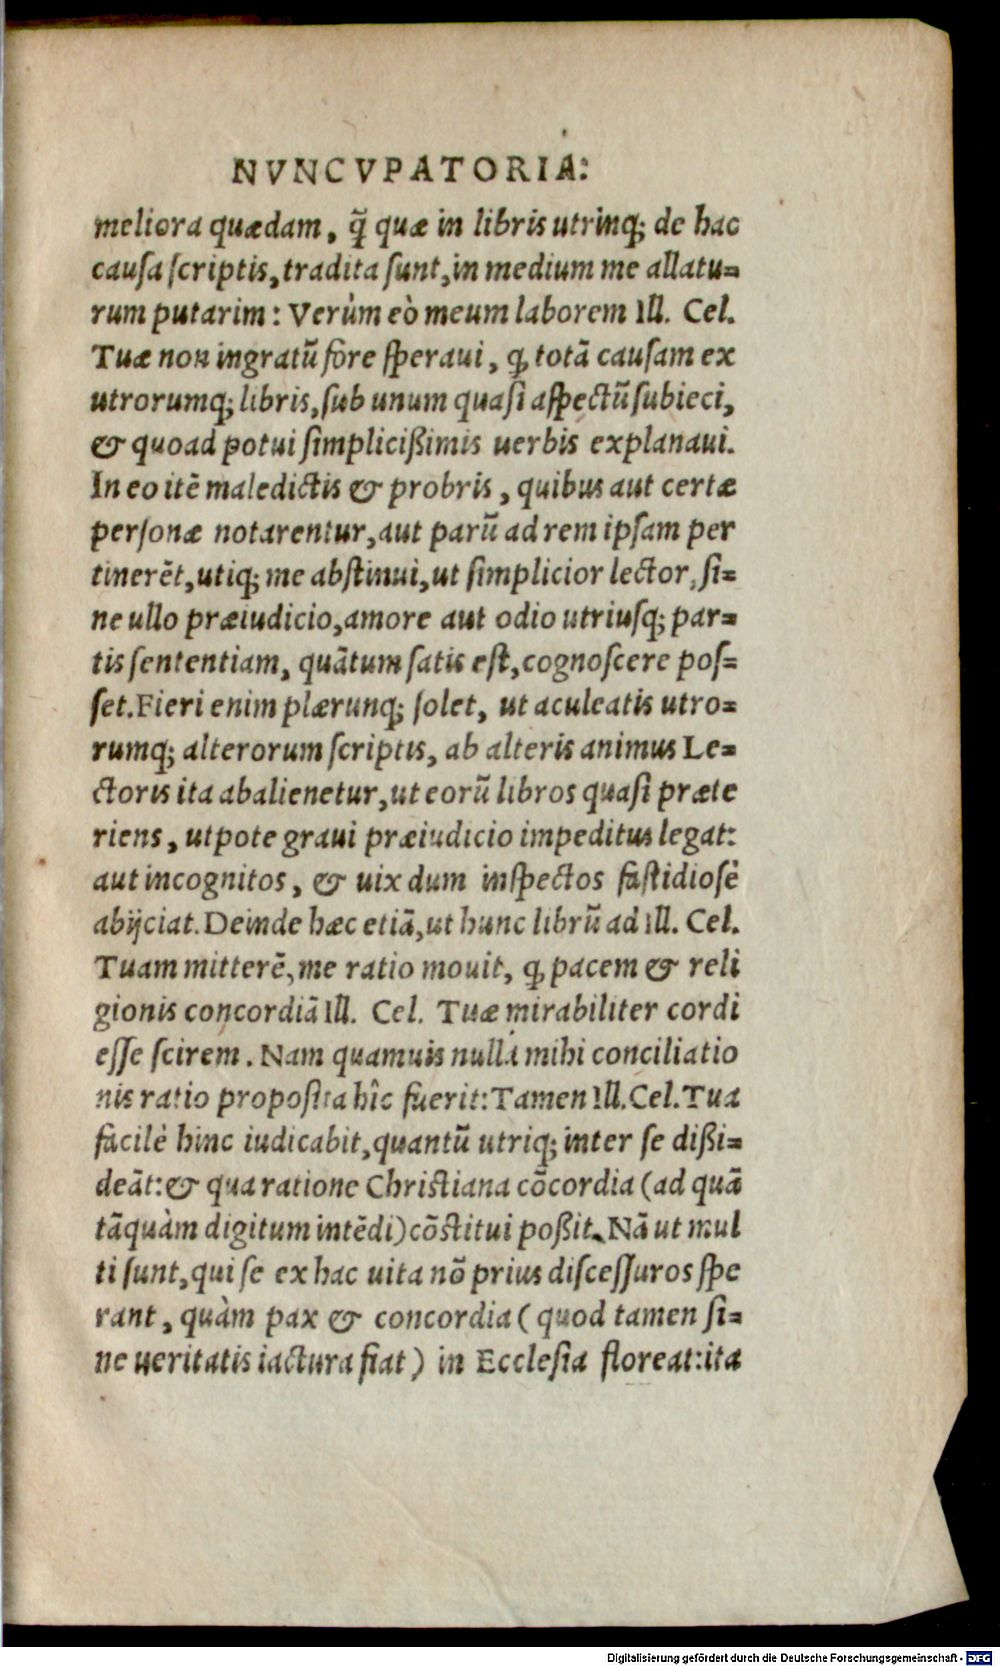 NVNCVPATORIA:
meliora quædam, q̃ quæ in libris utrinq; de hac
causa scriptis, tradita sunt, in medium me allatu=
rum putarim: Verùm eò meum laborem Ill. Cel.
Tuæ non ingratũ fore speraui, ꝙ totã causam ex
utrorumq; libris, sub unum quasi aspectũ subieci,
& quoad potui simplicißimis uerbis explanaui.
In eo itẽ maledictis & probris, quibus aut certæ
personæ notarentur, aut parũ ad rem ipsam per
tinerẽt, utiq; me abstinui, ut simplicior lector, si=
ne ullo præiudicio, amore aut odio utriusq; par=
tis sententiam, quãtum satis est, cognoscere pos=
set. Fieri enim plærunq; solet, ut aculeatis utro=
rumq; alterorum scriptis, ab alteris animus Le=
ctoris ita abalienetur, ut eorũ libros quasi præte
riens, utpote graui præiudicio impeditus legat:
aut incognitos, & uix dum inspectos fastidiosè
abijciat. Deinde hæc etiã, ut hunc librũ ad Ill. Cel.
Tuam mitterẽ, me ratio mouit, ꝙ pacem & reli
gionis concordiã Ill. Cel. Tuæ mirabiliter cordi
esse scirem. Nam quamuis nulla mihi conciliatio
nis ratio proposita hîc fuerit: Tamen Ill. Cel. Tua
facilè hinc iudicabit, quantũ utriq; inter se dißi=
deãt: & qua ratione Christiana cõcordia (ad quã
tãquàm digitum intẽdi) cõstitui poßit. Nã ut mul
ti sunt, qui se ex hac uita nõ prius discessuros spe
rant, quàm pax & concordia (quod tamen si=
ne ueritatis iactura fiat) in Ecclesia floreat: ita
Digitalisierung gefördert durch die Deutsche Forschungsgemeinschaft - DFG